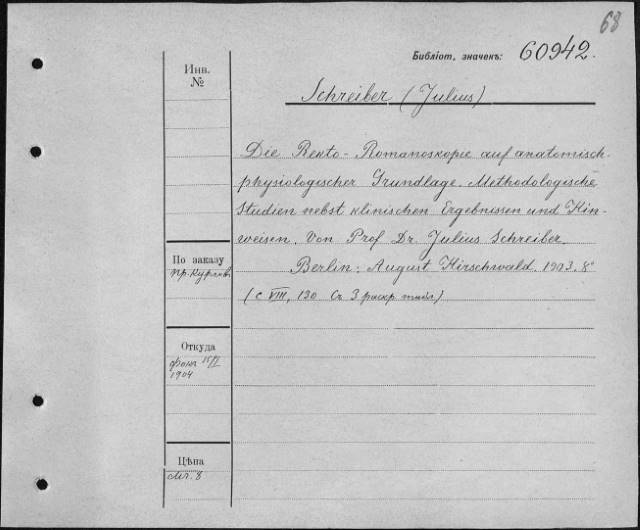 68
Библіот. значекъ: 60942.
Инв.
№
Schreiber (Julius)
Die Rekto-Romanoskopie auf anatomisch-
physiologischer Grundlage. Methodologische
Studien nebst klinischen Ergebnissen und Hin-
weisen. Von Prof Dr. Julius Schreiber.
Berlin: August Hirschwald. 1903. 8°
(с VIII, 130 Съ 3 раскр табл.)
По заказу
пр. Курлов.
Откуда
1904
Цѣна
Mr. 8